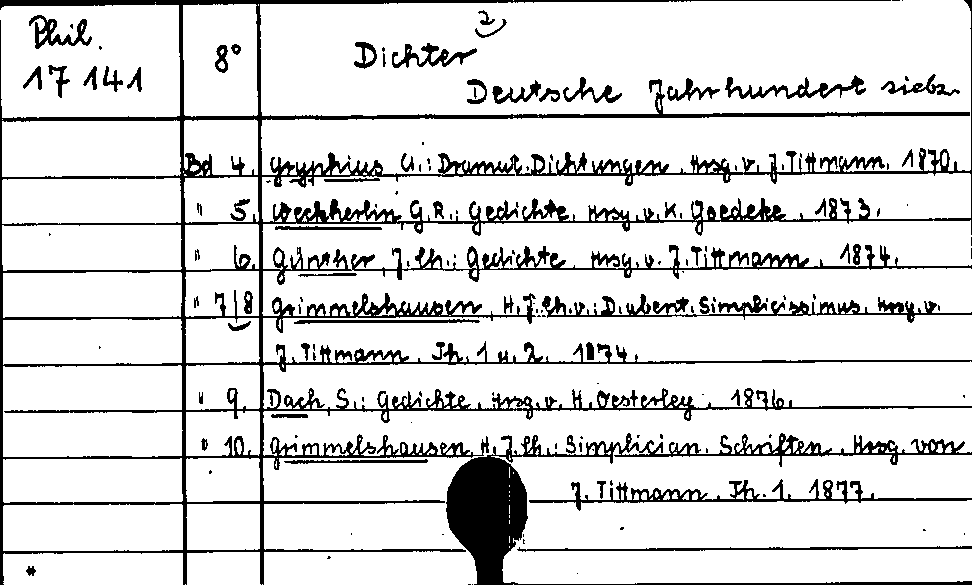 Phil.
17 141
8°
2
Dichter
Deutsche Jahrhundert siebz.
Bd 4. Gryphius, A.: Dramat. Dichtungen. Hrsg. v. J. Tittmann. 1870.
" 5. Weckherlin, G.R.: Gedichte. Hrsg. v. K. Goedeke. 1873.
" 6. Günther, J. Ch.: Gedichte. Hrsg. v. J. Tittmann. 1874.
" 7/8 Grimmelshausen, H. J. Ch. v.: D. abent. Simplicissimus. Hrsg. v.
J. Tittmann. Th. 1 u. 2. 1874.
" 9. Dach, S.: Gedichte. Hrsg. v. H. Oesterley. 1876.
" 10. Grimmelshausen, H. J. Ch.: Simplician. Schriften. Hrsg. von
J. Tittmann. Th. 1. 1877.
*